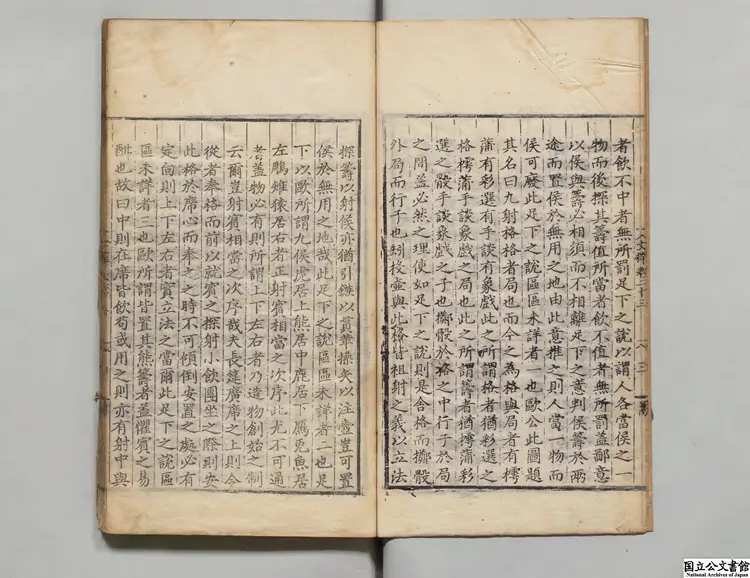 者飲不中者無所罰足下之說以謂人各當侯之一
物而後探其籌值所當者飲不值者無所罰盖鄙意
以侯與籌必相須而不相離足下之意判侯籌於兩
途而置侯於無用之地由此意推之則人當一物而
侯可廢此足下之說區區未詳者一也歐公此圖題
其名曰九射格格者局也而今之為格與局者有樗
蒲有彩選有手談有象戲此之所謂格者猶彩選之
格樗蒲手談象戲之局也此之所謂籌者猶樗蒲彩
選之骰手談象戲之子也擲骰於格之中行子於局
之間盖必然之理使如足下之說則是舍格而擲骰
外局而行子也矧投壺與此格皆祖射之義以立法
探籌以射侯亦猶引鏃以貫革操矢以注壺豈可置
侯於無用之地哉此足下之說區區未詳者二也足
下以歐所謂九侯虎居上熊居中鹿居下鴈兎魚居
左鵰雉猿居右者正射賓相當之次序此尤不可通
者盖物必有則所謂上下左右者乃造物創始之制
云爾豈射賓相當之次序哉夫長筵廣席之上則令
從者奉格而前以就賓之探射小飲團坐之際則安
此格於席心而奉之之時不可傾倒安置之處必有
定向則上下左右者實立法之當爾此足下之說區
區未詳者三也歐所謂皆置其熊籌者盖懼賓之易
酣也故曰中則在席皆飲苟或用之則亦有射中與
国立公文書館
National Archives of Japan